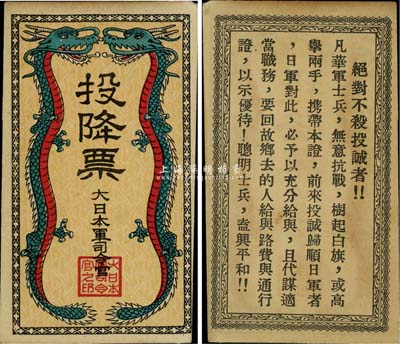 投降票
大日本軍司令官
大日本
軍司令
官之印
絕對不殺投誠者!!
凡華軍士兵，無意抗戰，樹起白旗，或高
舉兩手，携帶本證，前來投誠歸順日軍者
，日軍對此，必予以充分給與，且代謀適
當職務，要回故鄉去的人給與路費與通行
證，以示優待！聰明士兵，盍興平和!!